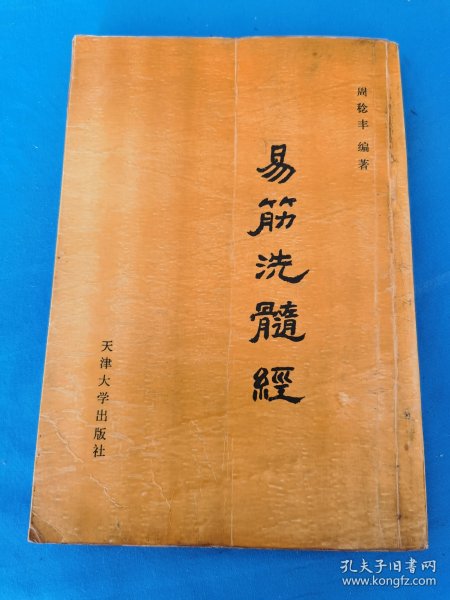 周稔丰 编著
易筋洗髓經
天津大学出版社
孔夫子旧书网
www.kongfz.com